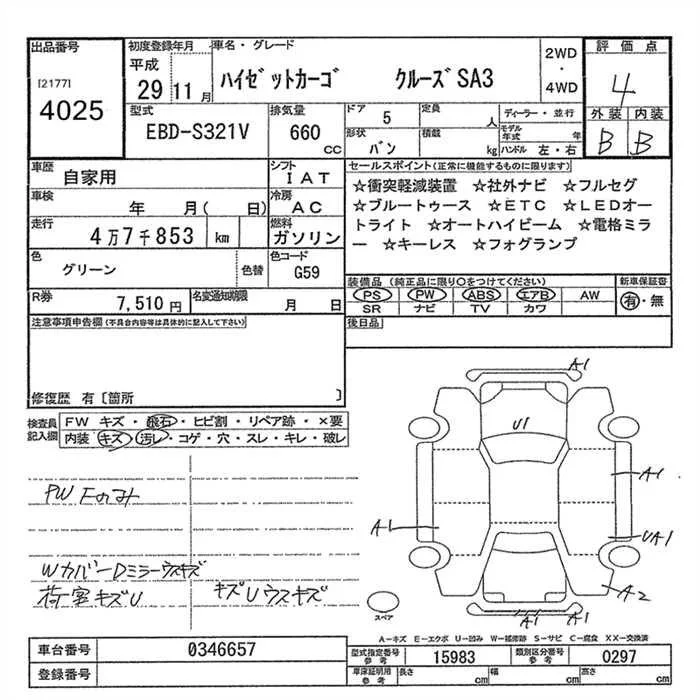 出品番号
[2177]
4025
初度登録年月
平成
29 11月
車名・グレード
ﾊｲｾﾞｯﾄｶｰｺﾞ ｸﾙｰｽﾞSA3
2WD
・
4WD
評価点
4
外装 内装
B B
型式
EBD-S321V
排気量
660
CC
ドア 5
定員 人
形状 バン
積載 kg
ディーラー・並行
モデル年式 年
ハンドル 左・右
車歴
自家用
シフト
IAT
車検
年 月( 日)
冷房
AC
走行
4万7千853 km
燃料
ガソリン
色
グリーン
色替
色コード
G59
R券
7,510円
名変通知期限
月 日
セールスポイント(正常に機能するものに限ります)
☆衝突軽減装置 ☆社外ナビ ☆フルセグ
☆ブルートゥース ☆ETC ☆LEDオー
トライト ☆オートハイビーム ☆電格ミラ
ー ☆キーレス ☆フォグランプ
装備品(純正品に限り○をつけてください)
PS PW ABS エアB AW
SR ナビ TV カワ
新車保証書
有・無
後日品
注意事項申告欄(不具合内容等は具体的に記入して下さい)
修復歴 有〔箇所 〕
検査員
記入欄
FW キズ・飛石・ヒビ割・リペア跡・×要
内装・キズ・汚レ・コゲ・穴・スレ・キレ・破レ
PW Fのみ
WカバーDミラーウスキズ
荷室キズU キズUウスキズ
A1
U1
A1
A1
UA1
A2
A1 A1
スペア
A-キズ E-エクボ U-凹み W-補修跡 S-サビ C-腐食 XX-交換済
車台番号
0346657
登録番号
型式指定番号
参考
15983
類別区分番号
参考
0297
車庫証明用
参考
長さ cm
幅 cm
高さ cm